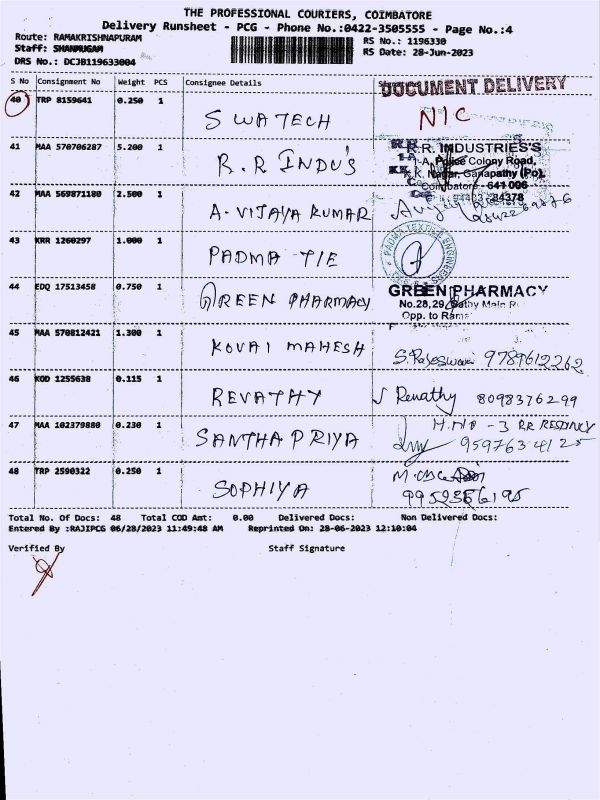 THE PROFESSIONAL COURIERS, COIMBATORE
Delivery Runsheet - PCG - Phone No.:0422-3505555 - Page No.:4
Route: RAMAKRISHNAPURAM
RS No.: 1196330
Staff: SHANMUGAM
RS Date: 28-Jun-2023
DRS No.: DCJB119633004
S No Consignment No Weight PCS Consignee Details
DOCUMENT DELIVERY
40 TRP 8159641 0.250 1 SWATECH NIC
41 MAA 570706287 5.200 1 R.R INDU'S
R.R. INDUSTRIES'S
Police Colony Road,
K.K. Nagar, Ganapathy (Po),
Coimbatore - 641 006
42 MAA 569871180 2.500 1 A. VIJAYA KUMAR
43 KRR 1260297 1.000 1 PADMA TIE
PADMA TEXTILE ENGINEERS
44 EDQ 17513458 0.750 1 GREEN PHARMACY
GREEN PHARMACY
No.28,29, Main
Opp. to
45 MAA 570812421 1.300 1 KOVAI MAHESH
S. Rajeswari 9789612262
46 KOD 1255638 0.115 1 REVATHY
Revathy 8098376299
47 MAA 102379880 0.230 1 SANTHA PRIYA
H.NO - 3 RR RESIDENCY
9597634125
48 TRP 2590322 0.250 1 SOPHIYA
Total No. Of Docs: 48 Total COD Amt: 0.00 Delivered Docs: Non Delivered Docs:
Entered By :RAJIPCG 06/28/2023 11:49:48 AM Reprinted On: 28-06-2023 12:10:04
Verified By Staff Signature